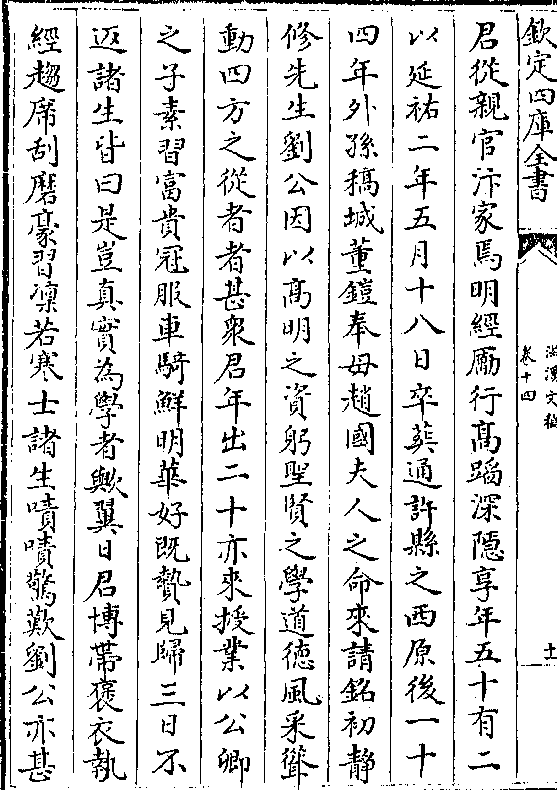 欽定四庫全書
滋溪文稿
卷十四
十一
君從親官汴家焉明經勵行髙蹈深隱享年五十有二
以延祐二年五月十八日卒葬通許縣之西原後一十
四年外孫稿城董鎧奉母趙國夫人之命來請銘初靜
修先生劉公因以髙明之資躬聖賢之學道德風采聳
動四方之從者者甚衆君年出二十亦來授業以公卿
之子素習富貴冠服車騎鮮明華好既贄見歸三日不
返諸生皆曰是豈真實為學者歟翼日君博帶褒衣執
經趨席刮磨豪習凛若寒士諸生嘖嘖驚歎劉公亦甚